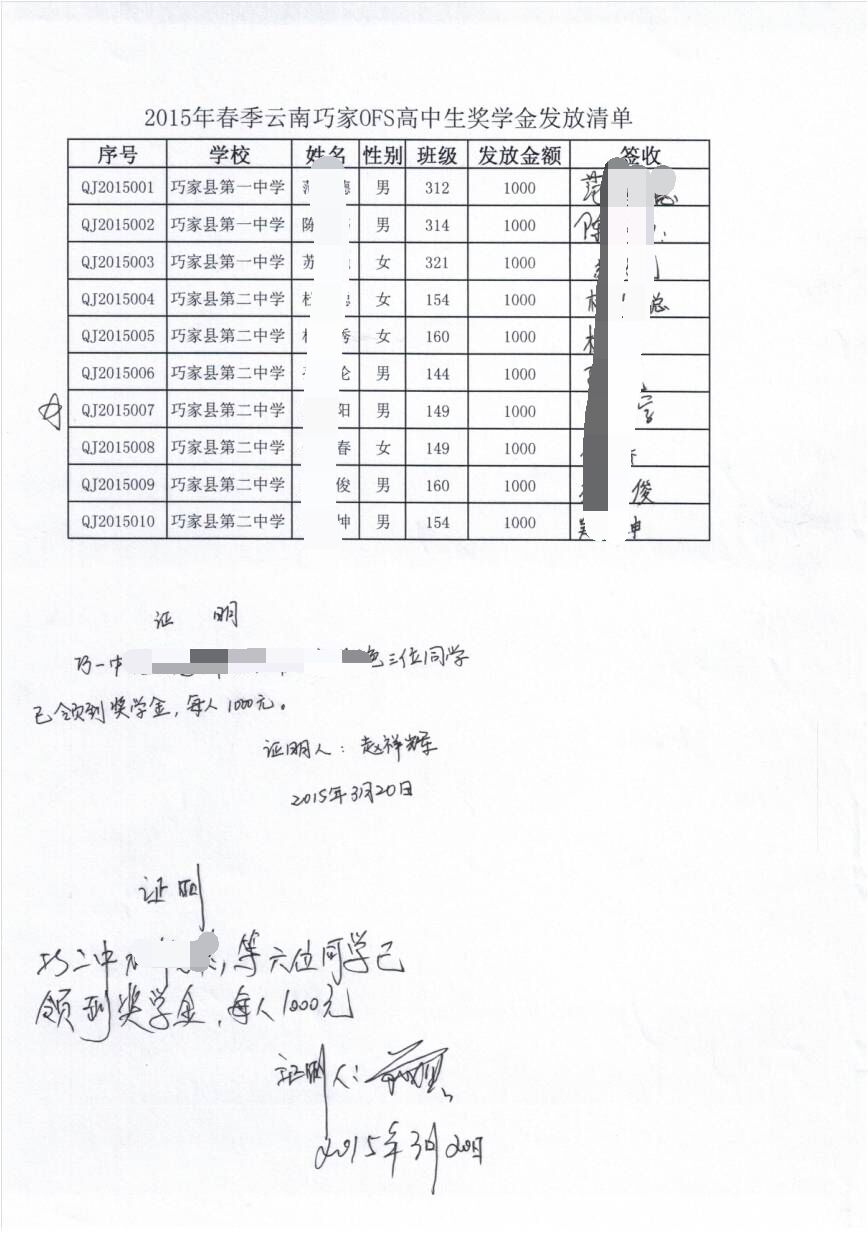 2015年春季云南巧家OFS高中生奖学金发放清单
序号 学校 姓名 性别 班级 发放金额 签收
QJ2015001 巧家县第一中学 德 男 312 1000 范
QJ2015002 巧家县第一中学 陈 男 314 1000 陈
QJ2015003 巧家县第一中学 苏 女 321 1000
QJ2015004 巧家县第二中学 女 154 1000 聪
QJ2015005 巧家县第二中学 秀 女 160 1000
QJ2015006 巧家县第二中学 伦 男 144 1000
QJ2015007 巧家县第二中学 阳 男 149 1000
QJ2015008 巧家县第二中学 春 女 149 1000
QJ2015009 巧家县第二中学 俊 男 160 1000 俊
QJ2015010 巧家县第二中学 坤 男 154 1000 吴 坤
证 明
巧一中 三位同学
已领到奖学金,每人1000元。
证明人:赵祥辉
2015年3月20日
证明
巧二中 等六位同学已
领到奖学金,每人1000元
证明人:
2015年3月20日